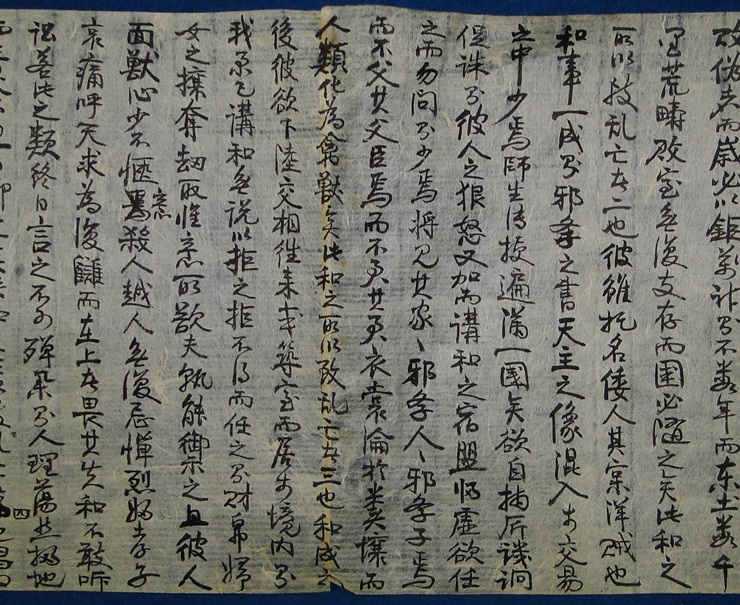 而歲必以鉅萬計則不數年而東土數千
里荒疇敗室無復支存而國必隨之矣此和之
所以致亂亡者二也彼雖托名倭人其實洋賊也
和事一成則邪學之書天主之像混入於交易
之中少焉師生傳授遍滿一國矣欲自捕斤譏詗
促誅則彼人之狠怒又加而講和之宿盟歸虛欲任
之而勿問則少焉將見其家〻邪學人〻邪學子焉
而不父其父臣焉而不君其君衣裳淪於糞壤而
人類化為禽獸矣此和之所以致亂亡者三也和成之
後彼欲下陸交相往來或築室而居於境內則
我系已講和無說以拒之拒不得而任之則財帛婦
女之攘奪劫取惟意所欲夫孰能禦之且彼人
面獸心少不愜意殺人越人無復忌憚烈婦孝子
哀痛呼天求為復讎而在上者畏其失和不敢听
訟若此之類終日言之不可殫舉則人理蕩然掃地
四